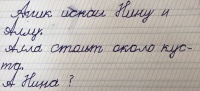 Алик искал Нину и
Аллу.
Алла стоит около кус-
та.
А Нина?